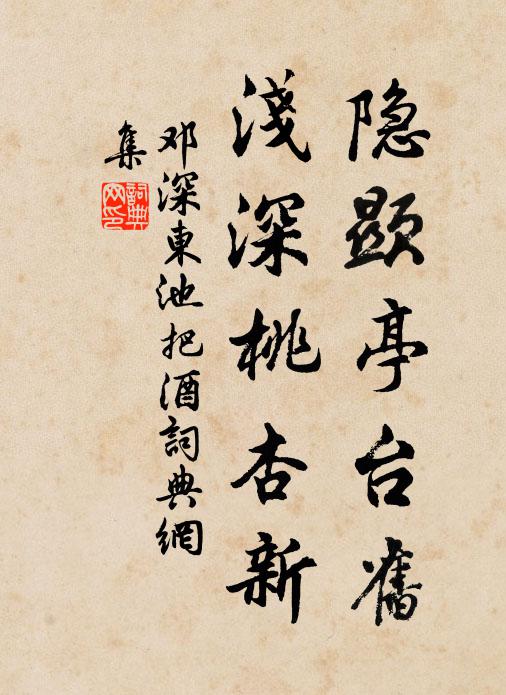 隐顯亭台舊
淺深桃杏新
邓深東池把酒詞典網
集
詞典
网印